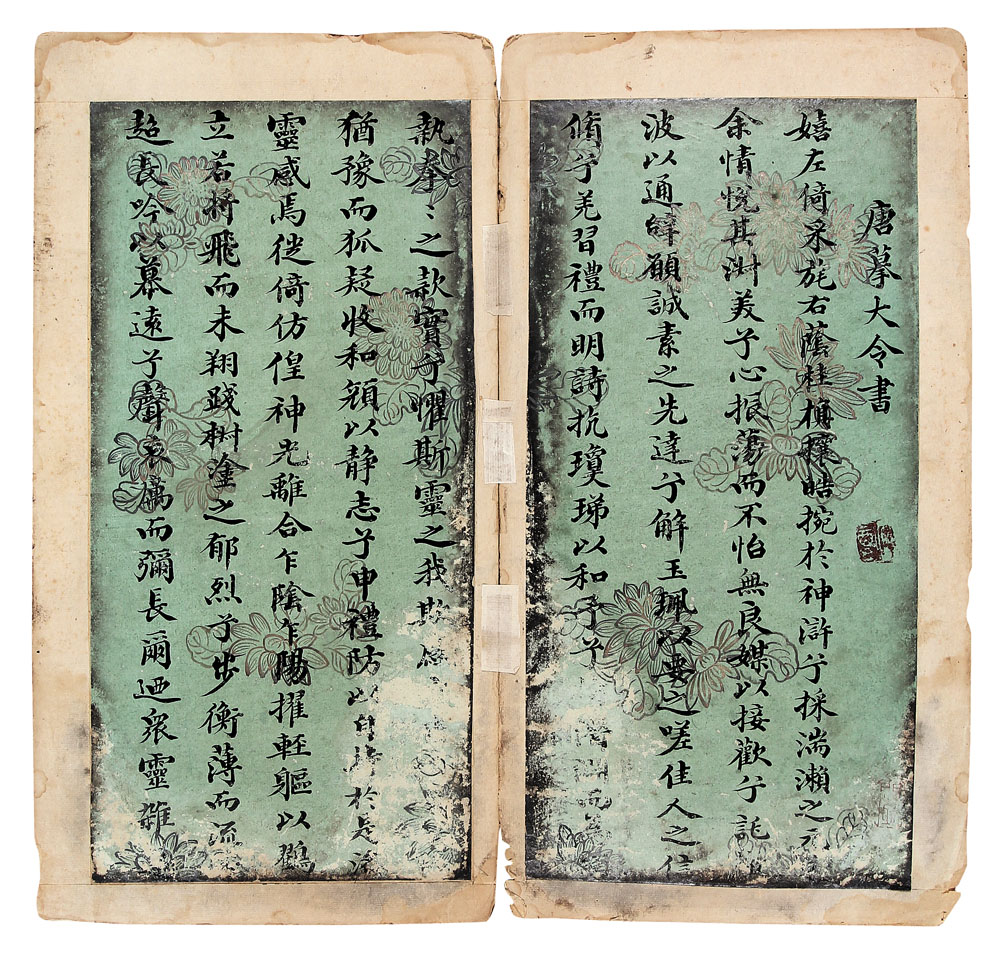 唐摹大令書
嬉左倚采旄右蔭桂旗攘皓捥於神滸兮採湍瀨之玄
余情悅其淑美兮心振蕩而不怡無良媒以接歡兮託
波以通辭願誠素之先達兮解玉珮以要之嗟佳人之信
脩兮羌習禮而明詩抗瓊珶以和予兮
執拳〻之款實兮懼斯靈之我欺
猶豫而狐疑收和顏以静志兮申禮防以自持於是洛
靈感焉徙倚仿偟神光離合乍陰乍陽擢輕軀以鶴
立若將飛而未翔踐椒塗之郁烈兮步衡薄而流
超長吟以慕遠兮聲哀厲而彌長爾迺眾靈雜